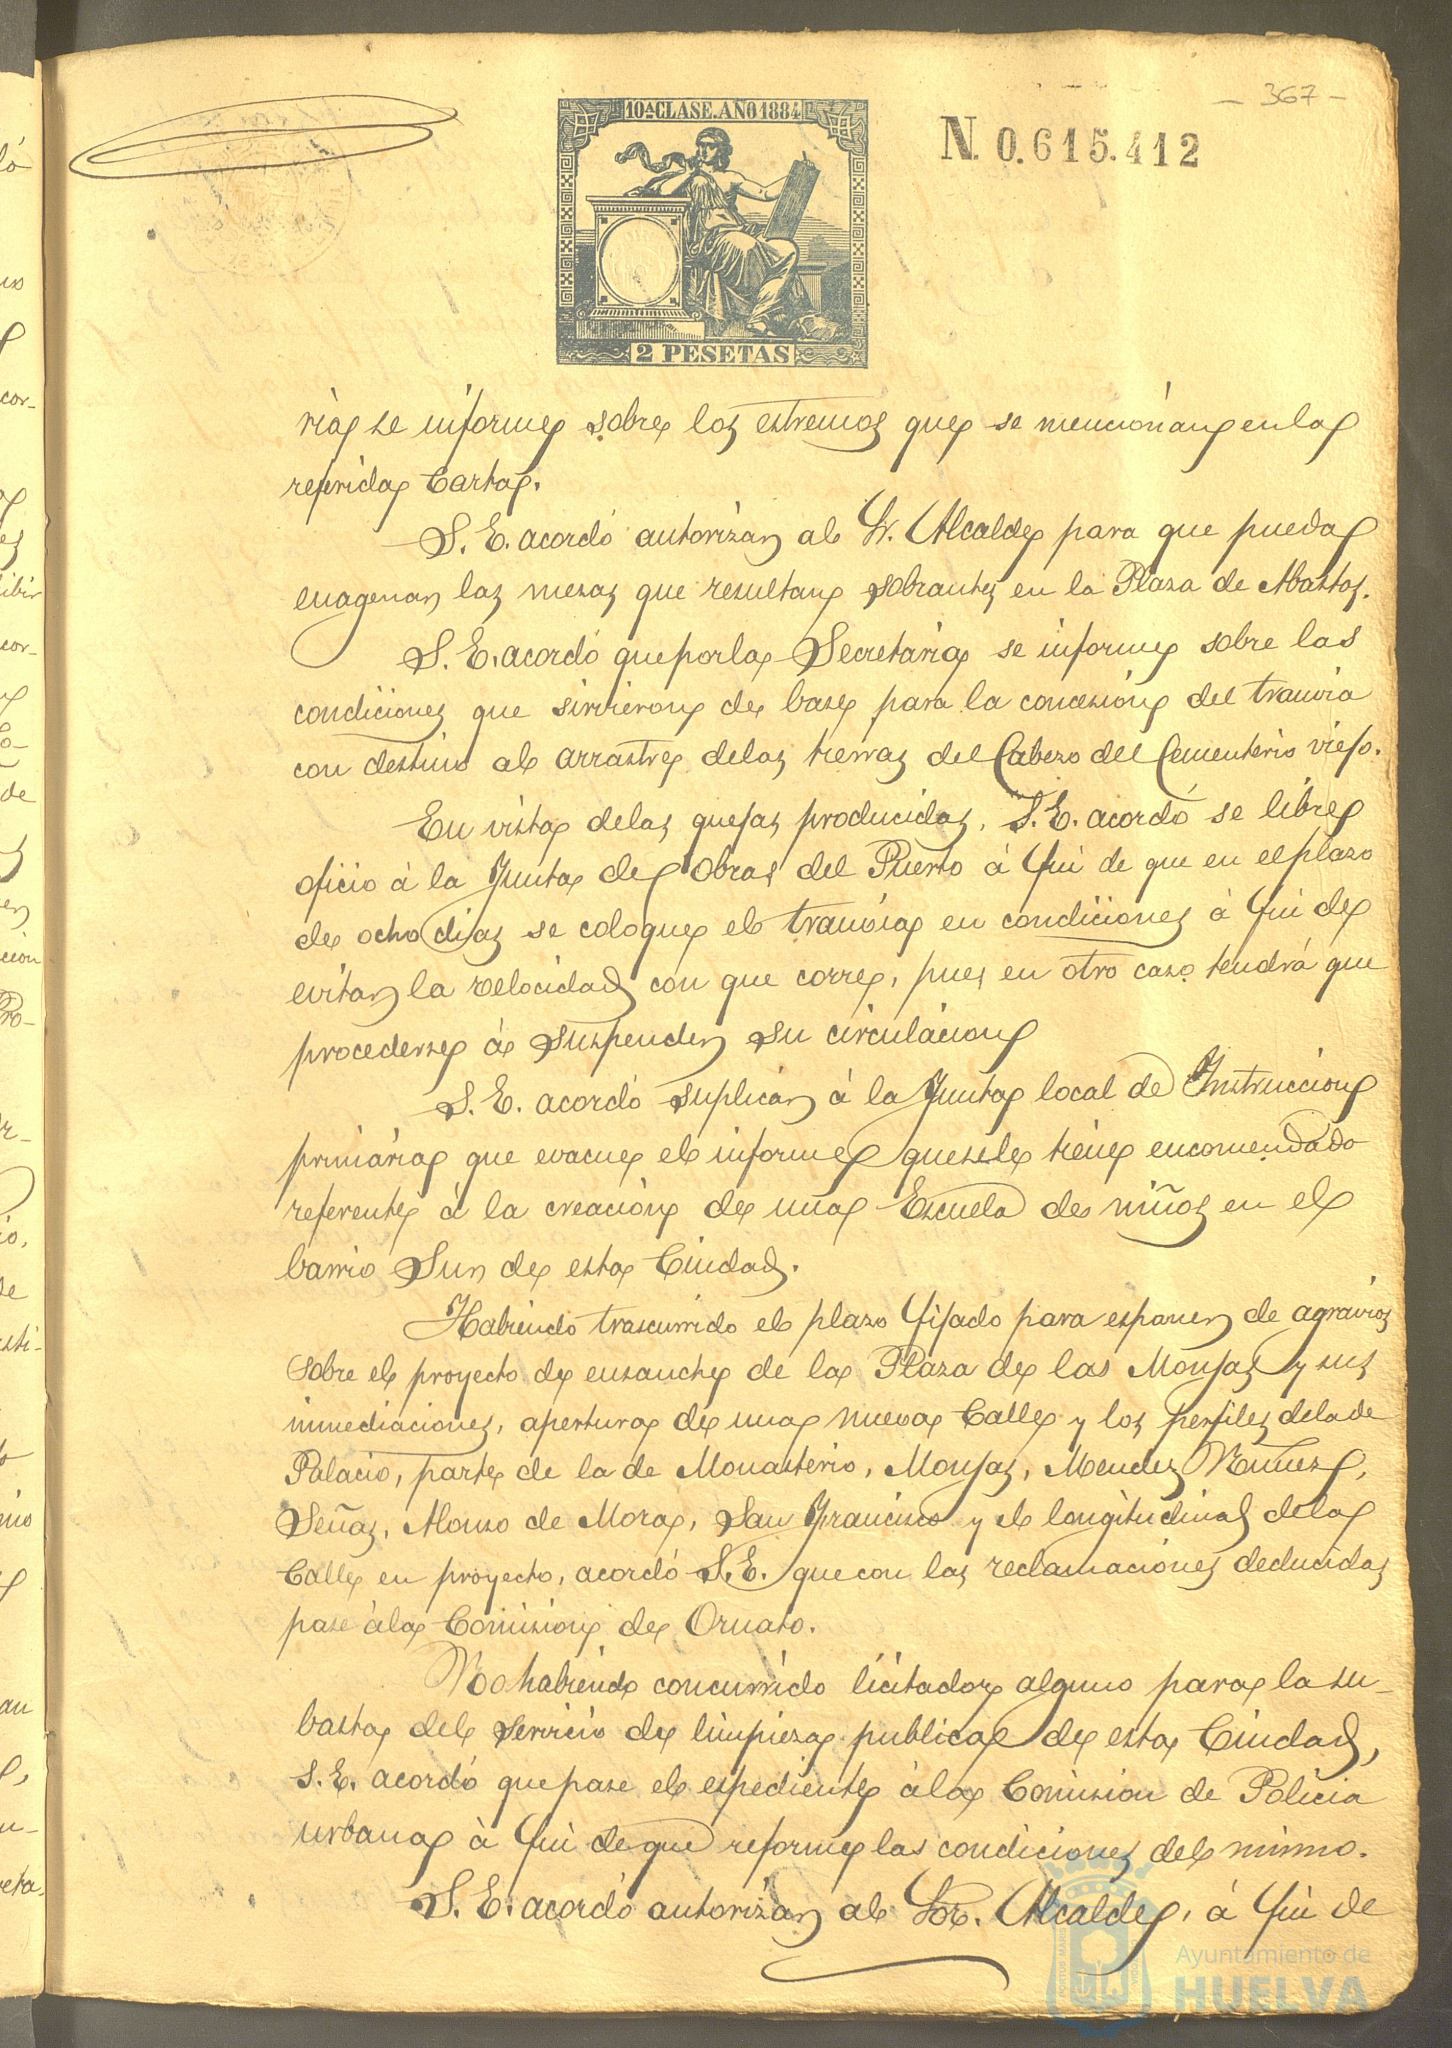 - 367 -
10ª CLASE. AÑO 1884
N. 0.615.412
2 PESETAS
ria se informe sobre los estremos que se mencionan en las
referidas Cartas.
S. E. acordó autorizar al Sr. Alcalde para que pueda
enagenar las mesas que resultan sobrantes en la Plaza de Abastos.
S. E. acordó que por la Secretaria se informe sobre las
condiciones que sirvieron de base para la concesion del tranvia
con destino al arrastre de las tierras del Cabezo del Cementerio viejo.
En vista de las quejas producidas, S. E. acordó se libre
oficio á la Junta de Obras del Puerto á fin de que en el plazo
de ocho dias se coloque el tranvia en condiciones á fin de
evitar la velocidad con que corre, pues en otro caso tendrá que
procederse á suspender su circulacion
S. E. acordó suplicar á la Junta local de Instruccion
primaria que evacue el informe que se le tiene encomendado
referente á la creacion de una Escuela de niños en el
barrio Sur de esta Ciudad.
Habiendo trascurrido el plazo fijado para esponer de agravios
sobre el proyecto de ensanche de la Plaza de las Monjas y sus
inmediaciones, apertura de una nueva Calle y los perfiles de la de
Palacio, parte de la de Monasterio, Monjas, Mendez Nuñez,
Señas, Alonso de Mora, San Francisco y el longitudinal de la
Calle en proyecto, acordó S. E. que con las reclamaciones deducidas
pase á la Comision de Ornato.
No habiendo concurrido licitador alguno para la su-
basta del servicio de limpieza publica de esta Ciudad,
S. E. acordó que pase el espediente á la Comision de Policia
urbana á fin de que reforme las condiciones del mismo.
S. E. acordó autorizar al Sor. Alcalde, á fin de
Ayuntamiento de
HUELVA